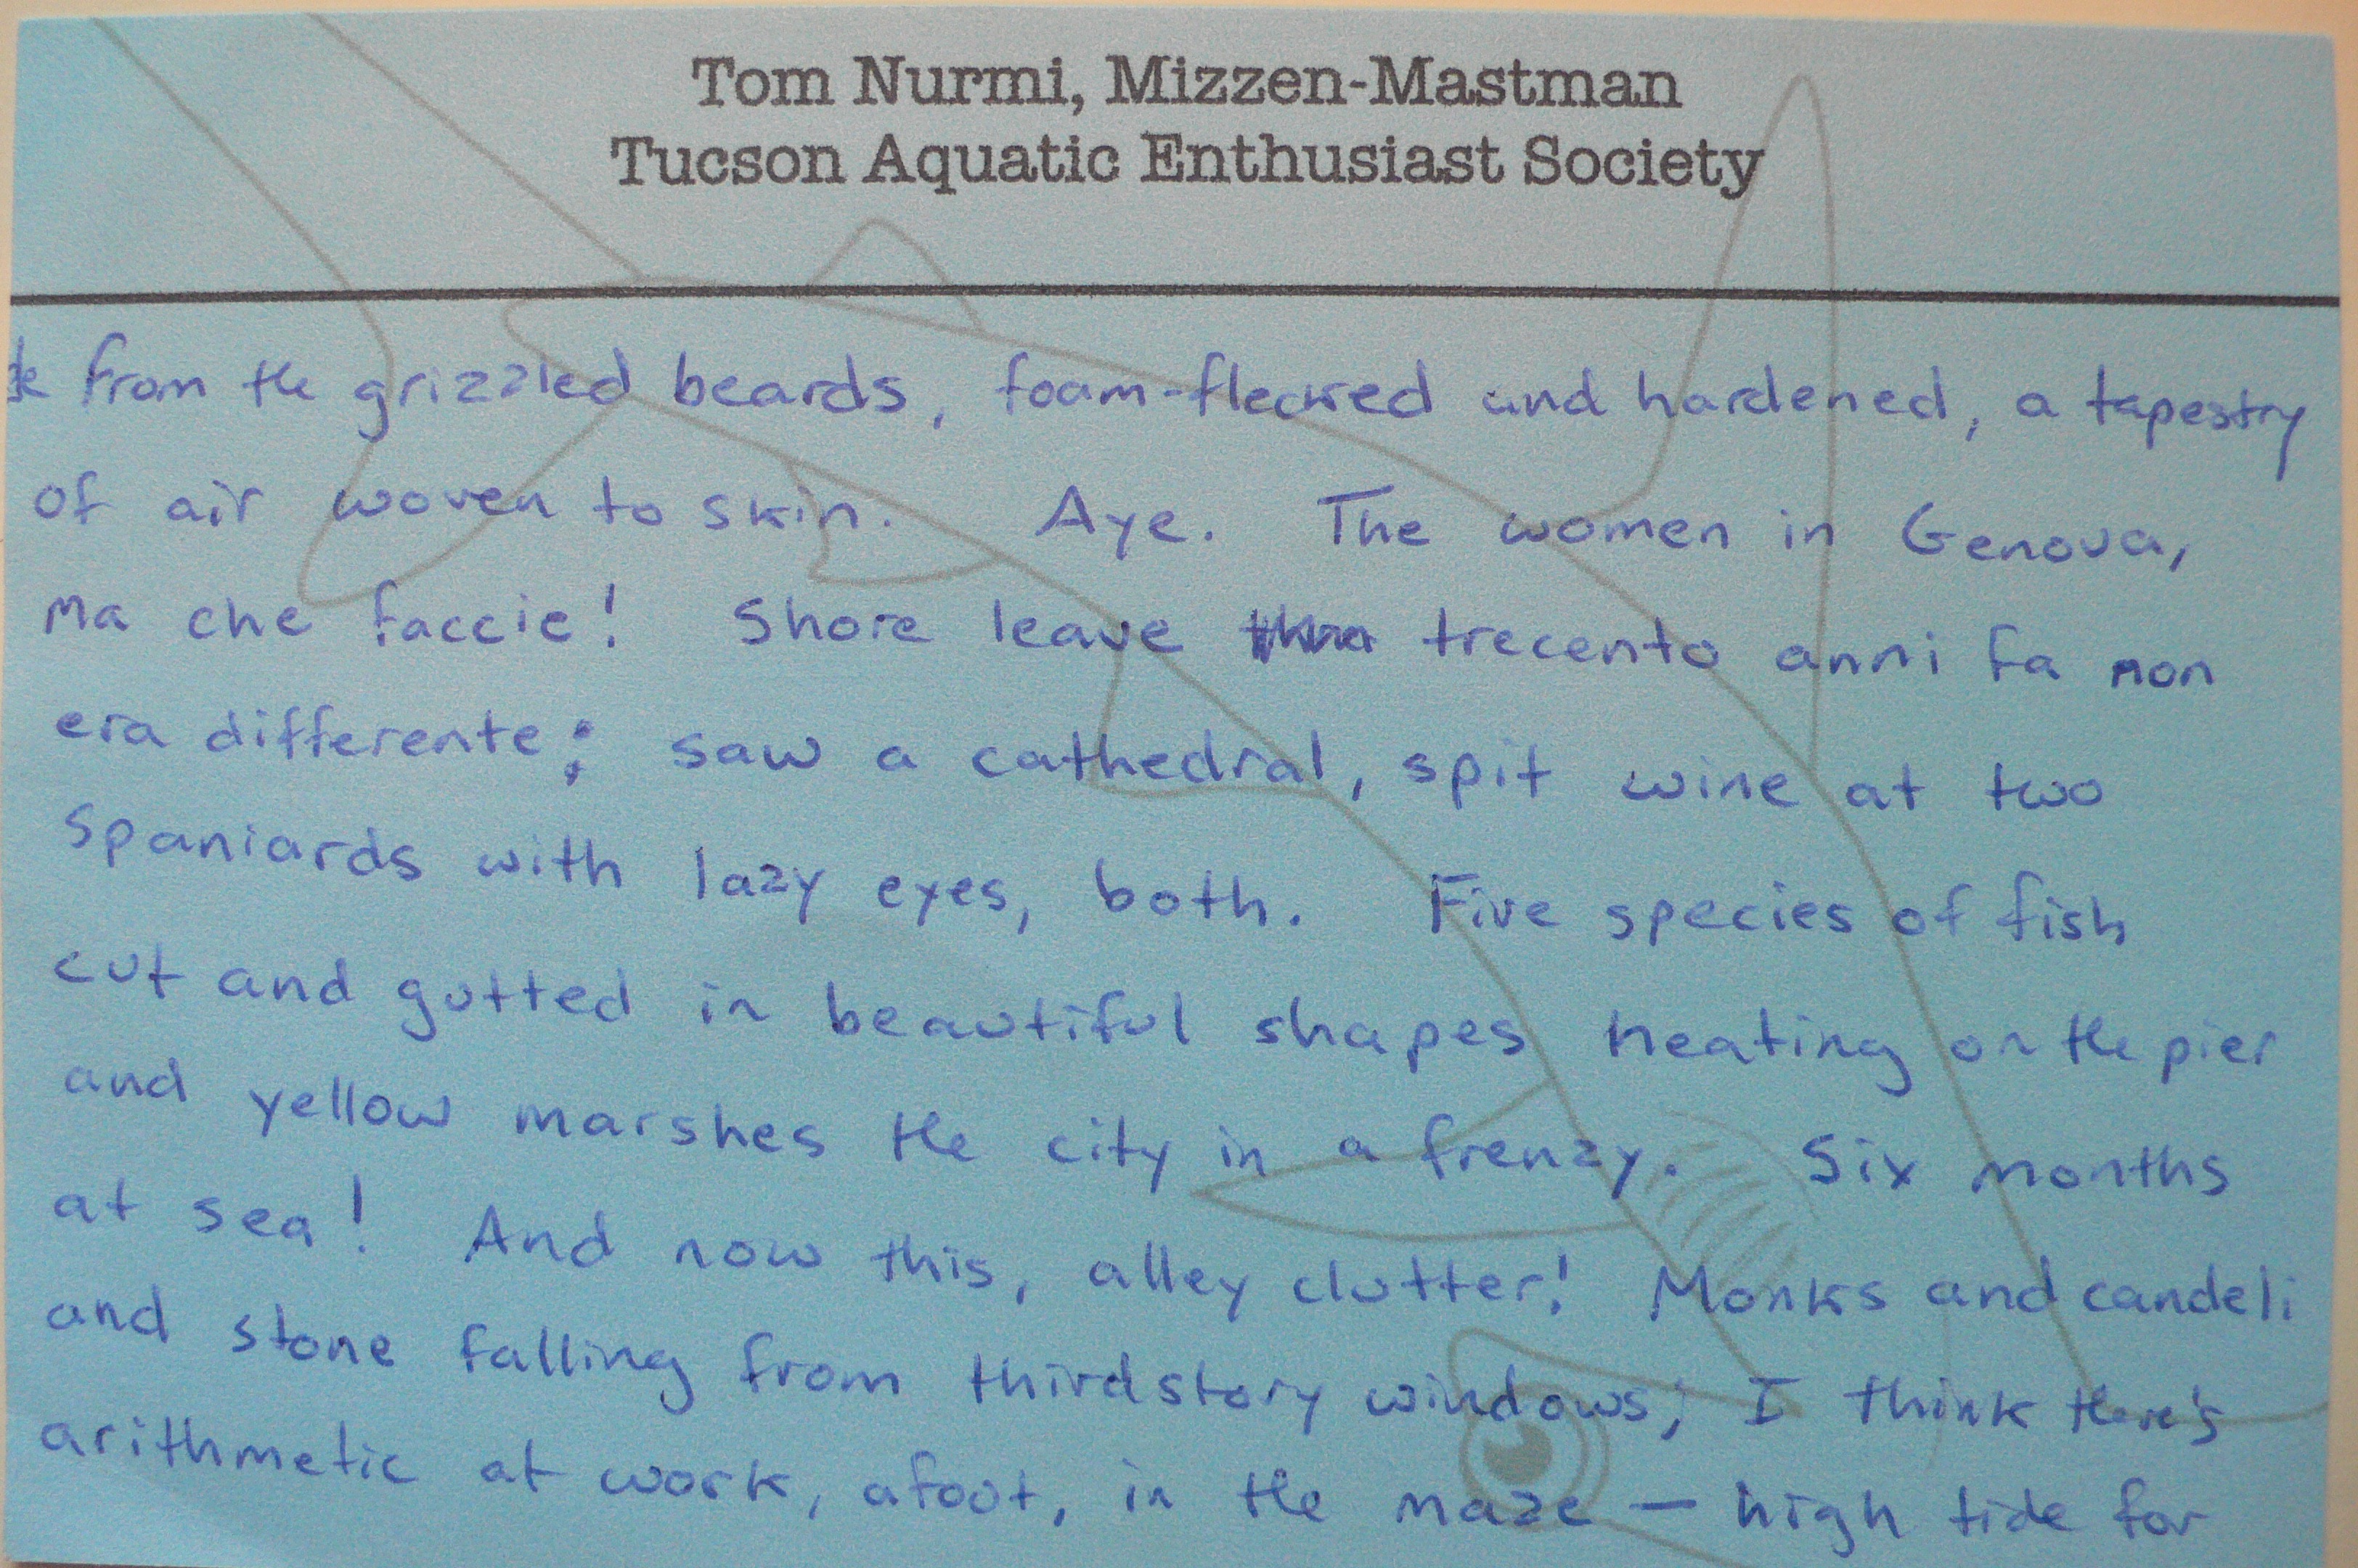 Tom Nurmi, Mizzen-Mastman
Tucson Aquatic Enthusiast Society
from the grizzled beards, foam-flecked and hardened, a tapestry
of air woven to skin. Aye. The women in Genova,
ma che faccie! Shore leave trecento anni fa non
era differente; saw a cathedral, spit wine at two
Spaniards with lazy eyes, both. Five species of fish
cut and gutted in beautiful shapes heating on the pier
and yellow marshes the city in a frenzy. Six months
at sea! And now this, alley clutter! Monks and candeli
and stone falling from third story windows; I think there's
arithmetic at work, afoot, in the maze — high tide for